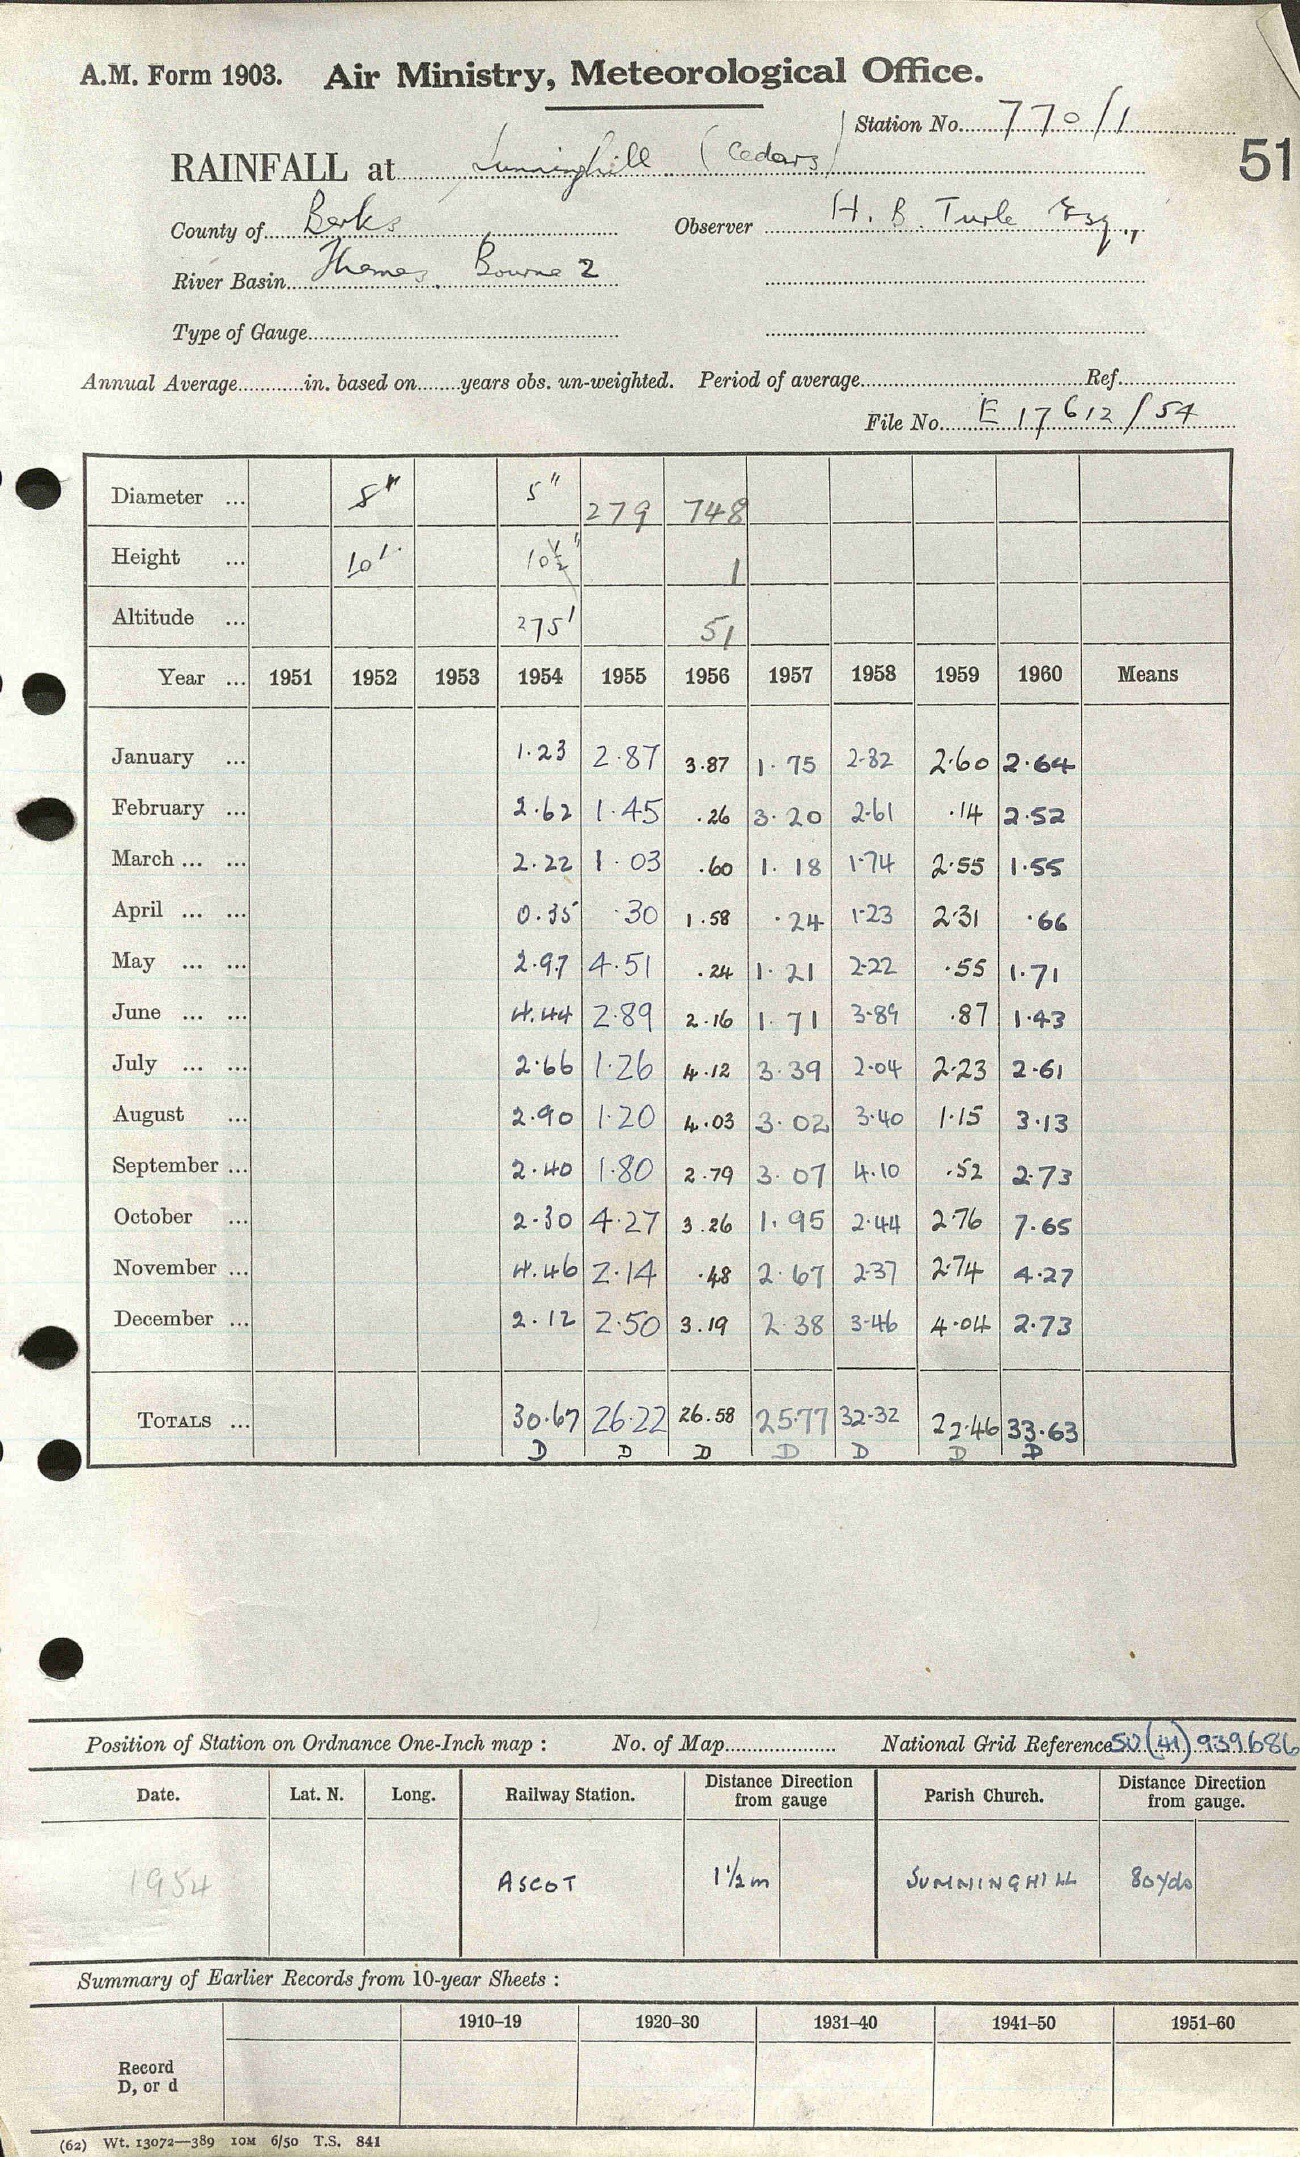 A.M. Form 1903. Air Ministry, Meteorological Office.
Station No. 770/1
51
RAINFALL at Sunninghill (Cedars)
County of Berks Observer H. B. Turle Esq.,
River Basin Thames. Bourne 2
Type of Gauge
Annual Average in. based on years obs. un-weighted. Period of average Ref.
File No. E 17612/54
Diameter ... 8" 5" 279 748
Height ... 10" 10½" 1
Altitude ... 275' 51
Year ... 1951 1952 1953 1954 1955 1956 1957 1958 1959 1960 Means
January ... 1.23 2.87 3.87 1.75 2.82 2.60 2.64
February ... 2.62 1.45 .26 3.20 2.61 .14 2.52
March ... ... 2.22 1.03 .60 1.18 1.74 2.55 1.55
April ... ... 0.35 .30 1.58 .24 1.23 2.31 .66
May ... ... 2.97 4.51 .24 1.21 2.22 .55 1.71
June ... ... 4.44 2.89 2.16 1.71 3.89 .87 1.43
July ... ... 2.66 1.26 4.12 3.39 2.04 2.23 2.61
August ... 2.90 1.20 4.03 3.02 3.40 1.15 3.13
September ... 2.40 1.80 2.79 3.07 4.10 .52 2.73
October ... 2.30 4.27 3.26 1.95 2.44 2.76 7.65
November ... 4.46 2.14 .48 2.67 2.37 2.74 4.27
December ... 2.12 2.50 3.19 2.38 3.46 4.04 2.73
TOTALS ... 30.67 26.22 26.58 25.77 32.32 22.46 33.63
D D D D D D D
Position of Station on Ordnance One-Inch map : No. of Map National Grid Reference SU (41) 939686
Date. Lat. N. Long. Railway Station. Distance Direction from gauge Parish Church. Distance Direction from gauge.
1954 ASCOT 1½ m SUNNINGHILL 80 yds
Summary of Earlier Records from 10-year Sheets :
1910–19 1920–30 1931–40 1941–50 1951–60
Record
D, or d
(62) Wt. 13072—389 10M 6/50 T.S. 841